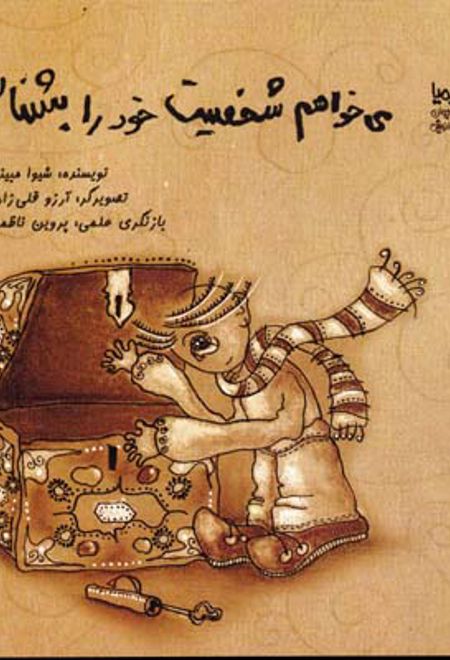 می‌خواهم شخصیت خود را بشنا
نویسنده: شیوا مبین
تصویرگر: آرزو قلی‌زا
بازنگری علمی: پروین ناظم